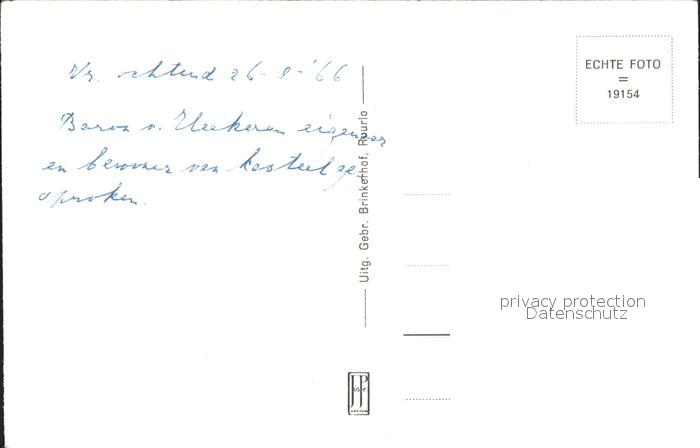 Vr. ochtend 26-8-'66
Baron v. Heekeren eigenaar
en bewoner van kasteel ge-
sproken.
Uitg. Gebr. Brinkerhof, Ruurlo
ECHTE FOTO
=
19154
privacy protection
Datenschutz